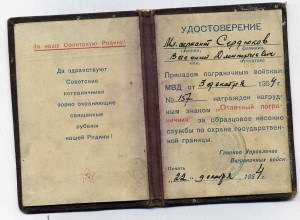 За нашу Советскую Родину!
Да здравствуют
Советские
пограничники
зорко охраняющие
священные
рубежи
нашей Родины!
УДОСТОВЕРЕНИЕ
Мл. сержант Сердюков
Василий Дмитриевич
Приказом пограничным войскам
МВД от 3 декабря 1954 г
№ 157 награжден нагруд-
ным знаком „Отличный погра-
ничник" за образцовое несение
службы по охране государствен-
ной границы.
Главное Управление
Пограничных войск
Печать
„22" декабря 1954.